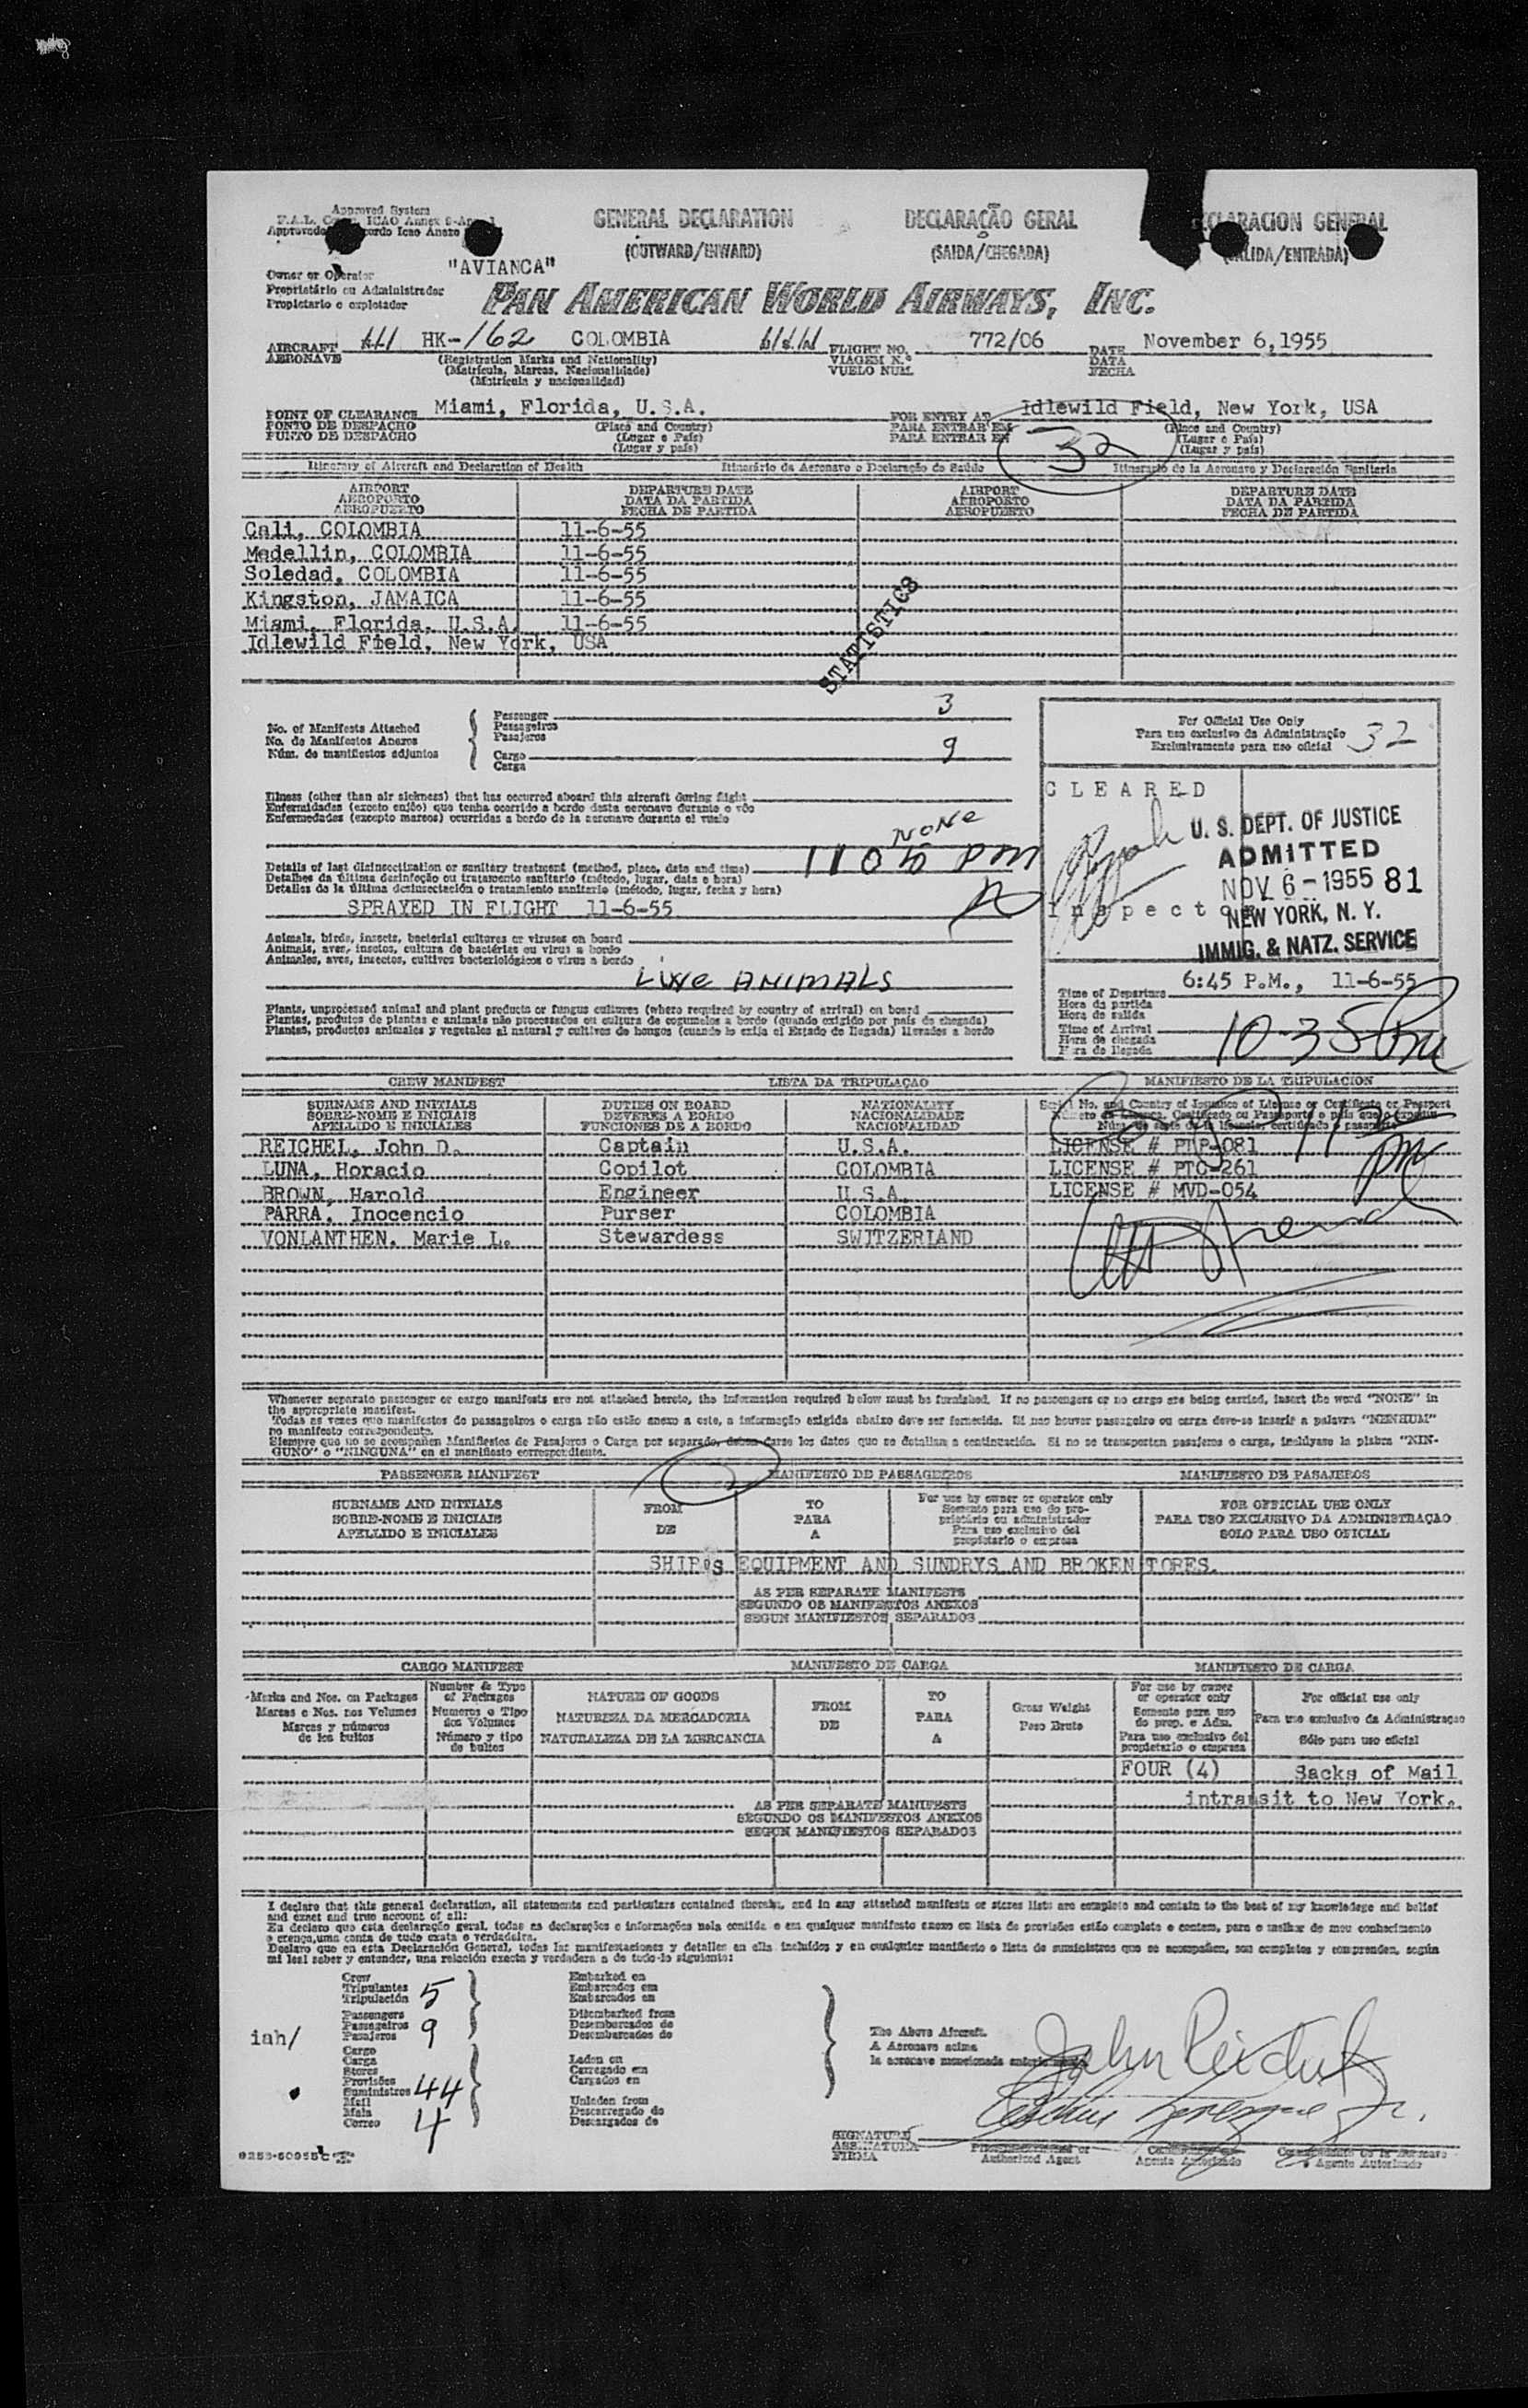 Approved System
GENERAL DECLARATION
(OUTWARD/INWARD)
DECLARAÇÃO GERAL
(SAIDA/CHEGADA)
CLARACION GENERAL
LIDA/ENTRADA)
"AVIANCA"
Owner or Operator
Proprietário ou Administrador
Propietario o explotador
PAN AMERICAN WORLD AIRWAYS, INC.
AIRCRAFT HK-162 COLOMBIA FLIGHT NO. 772/06 DATE November 6,1955
AERONAVE (Registration Marks and Nationality) VIAGEM N.º DATA
(Matricula, Marcas, Nacionalidade) VUELO NUM. FECHA
(Matricula y nacionalidad)
POINT OF CLEARANCE Miami, Florida, U.S.A. FOR ENTRY AT Idlewild Field, New York, USA
PONTO DE DESPACHO (Place and Country) PARA ENTRAR EM (Place and Country)
PUNTO DE DESPACHO (Lugar e País) PARA ENTRAR EN (Lugar e País)
(Lugar y país) 32 (Lugar y país)
Itinerary of Aircraft and Declaration of Health Itinerário da Aeronave e Declaração de Saúde Itinerario de la Aeronave y Declaración Sanitaria
AIRPORT DEPARTURE DATE AIRPORT DEPARTURE DATE
AEROPORTO DATA DA PARTIDA AEROPORTO DATA DA PARTIDA
AEROPUERTO FECHA DE PARTIDA AEROPUERTO FECHA DE PARTIDA
Cali, COLOMBIA 11-6-55
Medellin, COLOMBIA 11-6-55
Soledad, COLOMBIA 11-6-55
Kingston, JAMAICA 11-6-55
Miami, Florida, U.S.A. 11-6-55
Idlewild Field, New York, USA
STATISTICS
No. of Manifests Attached
No. de Manifestos Anexos
Núm. de manifiestos adjuntos
Passenger 3
Passageiros
Pasajeros
Cargo 9
Carga
For Official Use Only
Para uso exclusivo da Administração
Exclusivamente para uso oficial 32
Illness (other than air sickness) that has occurred aboard this aircraft during flight
Enfermidades (exceto enjôo) que tenha ocorrido a bordo desta aeronave durante o vôo
Enfermedades (excepto mareos) ocurridas a bordo de la aeronave durante el vuelo
NONE
Details of last disinsectization or sanitary treatment (method, place, date and time)
Detalhes da última desinfeção ou tratamento sanitário (método, lugar, data e hora)
Detalles de la última desinsectación o tratamiento sanitario (método, lugar, fecha y hora)
SPRAYED IN FLIGHT 11-6-55
CLEARED
Inspector
U. S. DEPT. OF JUSTICE
ADMITTED
NOV 6 - 1955 81
NEW YORK, N. Y.
IMMIG. & NATZ. SERVICE
Animals, birds, insects, bacterial cultures or viruses on board
Animais, aves, insetos, cultura de bactérias ou virus a bordo
Animales, aves, insectos, cultivos bacteriológicos o virus a bordo
LIVE ANIMALS
Plants, unprocessed animal and plant products or fungus cultures (where required by country of arrival) on board
Plantas, produtos de plantas e animais não processados ou cultura de cogumelos a bordo (quando exigido por país de chegada)
Plantas, productos animales y vegetales al natural y cultivos de hongos (cuando lo exija el Estado de llegada) llevados a bordo
Time of Departure 6:45 P.M., 11-6-55
Hora da partida
Hora de salida
Time of Arrival 10-35 Pm
Hora de chegada
Hora de llegada
CREW MANIFEST LISTA DA TRIPULAÇAO MANIFIESTO DE LA TRIPULACION
SURNAME AND INITIALS DUTIES ON BOARD NATIONALITY Serial No. and Country of Issuance of License or Certificate or Passport
SOBRE-NOME E INICIAIS DEVERES A BORDO NACIONALIDADE
APELLIDO E INICIALES FUNCIONES DE A BORDO NACIONALIDAD
REICHEL, John D. Captain U.S.A. LICENSE # PTP-081
LUNA, Horacio Copilot COLOMBIA LICENSE # PTC-261
BROWN, Harold Engineer U.S.A. LICENSE # MVD-054
PARRA, Inocencio Purser COLOMBIA
VONLANTHEN. Marie L. Stewardess SWITZERLAND
Whenever separate passenger or cargo manifests are not attached hereto, the information required below must be furnished. If no passengers or no cargo are being carried, insert the word "NONE" in
the appropriate manifest.
Todas as vezes que manifestos de passageiros o carga não estão anexo a este, a informação exigida abaixo deve ser fornecida. Si nao houver passageiro ou carga deve-se inserir a palavra "NENHUM"
no manifesto correspondente.
Siempre que no se acompañen Manifiestos de Pasajeros o Carga por separado, deben darse los datos que se detallan a continuación. Si no se transporten pasajeros o carga, inclúyase la plabra "NIN-
GUNO" o "NINGUNA" en el manifiesto correspondiente.
PASSENGER MANIFEST MANIFESTO DE PASSAGEIROS MANIFIESTO DE PASAJEROS
SURNAME AND INITIALS FROM TO For use by owner or operator only FOR OFFICIAL USE ONLY
SOBRE-NOME E INICIAIS PARA Somente para uso do pro- PARA USO EXCLUSIVO DA ADMINISTRAÇAO
APELLIDO E INICIALES DE A prietário ou administrador SOLO PARA USO OFICIAL
Para uso exclusivo del
propietario o empresa
SHIP's EQUIPMENT AND SUNDRYS AND BROKEN TORES.
AS PER SEPARATE MANIFESTS
SEGUNDO OS MANIFESTOS ANEXOS
SEGUN MANIFIESTOS SEPARADOS
CARGO MANIFEST MANIFESTO DE CARGA MANIFIESTO DE CARGA
Marks and Nos. on Packages Number & Type of Packages NATURE OF GOODS FROM TO Gross Weight For use by owner or operator only For official use only
Marcas e Nos. nos Volumes Numeros e Tipo dos Volumes NATUREZA DA MERCADORIA DE PARA Peso Bruto Somente para uso do prop. e Adm. Para uso exclusivo da Administraçao
Marcas y números de los bultos Número y tipo de bultos NATURALEZA DE LA MERCANCIA A Para uso exclusivo del propietario o empresa Sólo para uso oficial
FOUR (4) Sacks of Mail
intransit to New York.
AS PER SEPARATE MANIFESTS
SEGUNDO OS MANIFESTOS ANEXOS
SEGUN MANIFIESTOS SEPARADOS
I declare that this general declaration, all statements and particulars contained therein, and in any attached manifests or stores lists are complete and contain to the best of my knowledege and belief
and exact and true account of all:
Eu declaro que esta declaração geral, todas as declarações e informações nela contida e em qualquer manifesto anexo ou lista de provisões estão completo e contem, para o melhor de meu conhecimento
e crença, uma conta de tudo exata e verdadeira.
Declaro que en esta Declaración General, todas las manifestaciones y detalles en ella incluídos y en cualquier manifiesto o lista de suministros que se acompañen, son completos y comprenden, según
mi leal saber y entender, una relación exacta y verdadera a de todo lo siguiente:
Crew Embarked on
Tripulantes 5 Embarcados em
Tripulación Embarcados en
Passengers Disembarked from
Passageiros 9 Desembarcados de
Pasajeros Desembarcados de
iah/
Cargo
Carga Laden on
Stores Carregado em
Provisões Cargados en
Suministros 44
Mail Unladen from
Mala 4 Descarregado do
Correo Descargados de
The Above Aircraft.
A Aeronave acima
SIGNATURE
ASSINATURA
FIRMA
Authorized Agent Agente Autorizado o Agente Autorizado